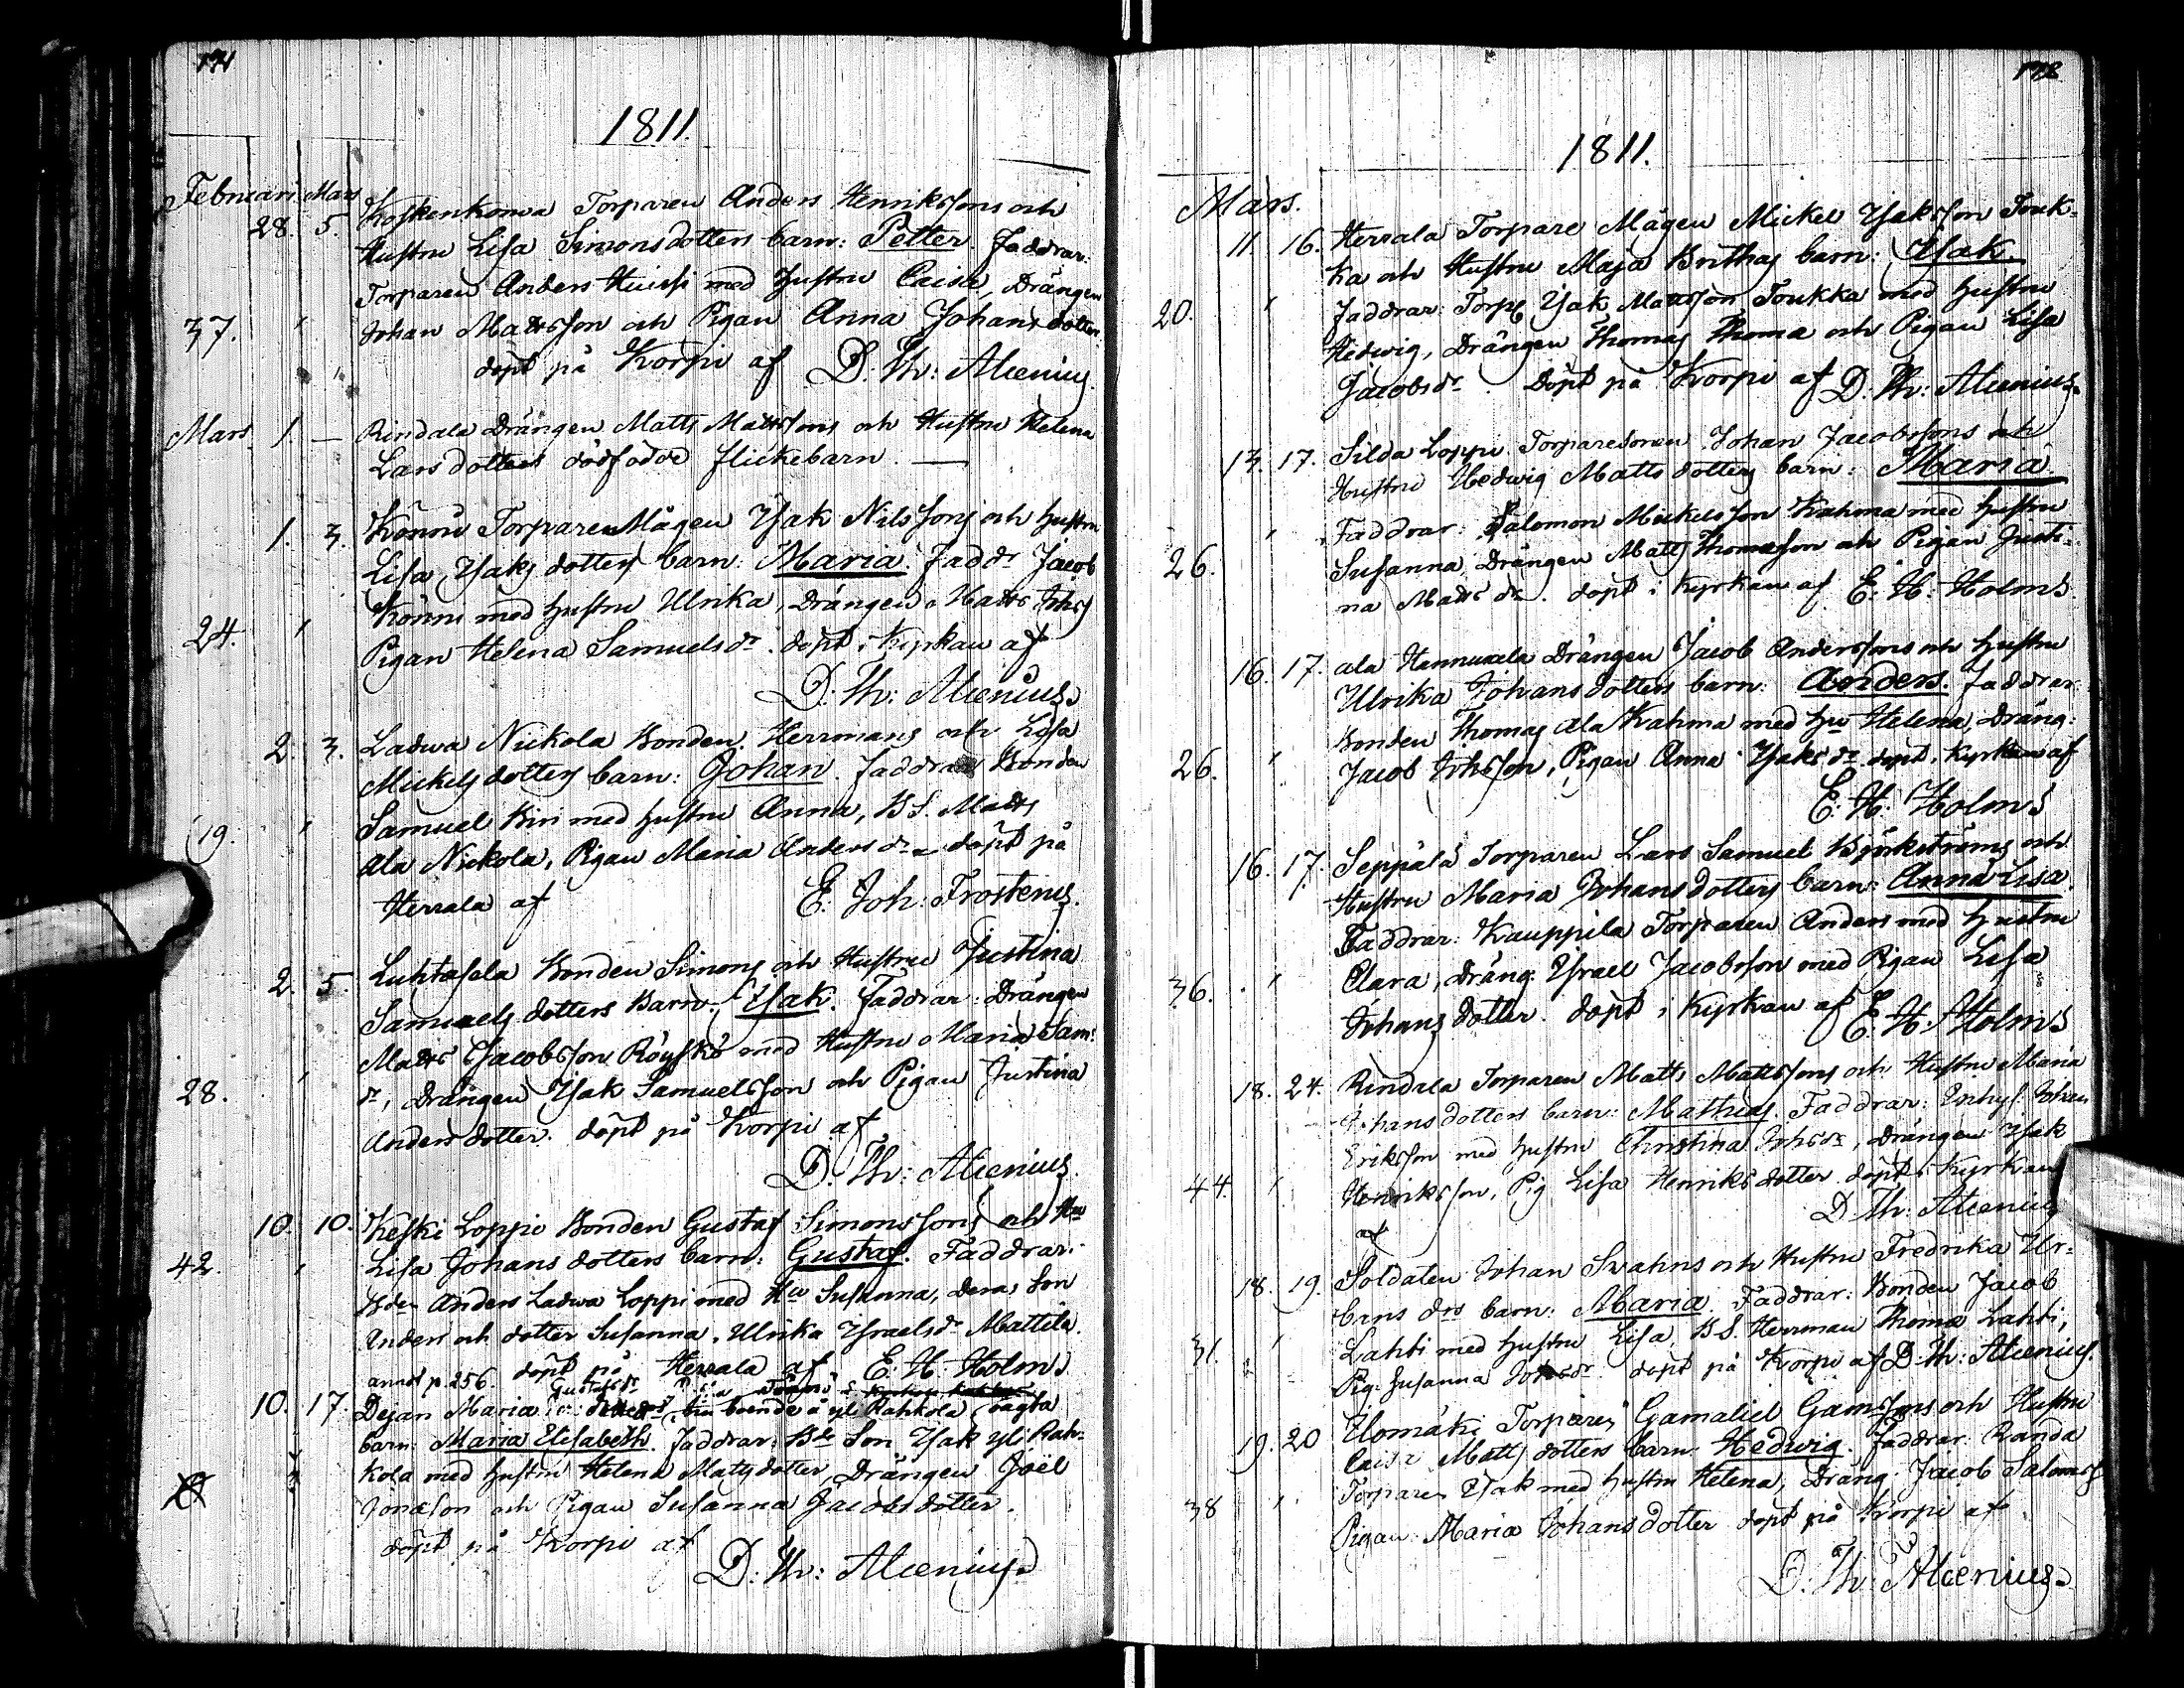 1811.
Februari Mars
28. 5. Koskenkorwa Torparen Anders Henrikssons och
Hustru Lisa Simonsdotters barn: Petter. Faddrar:
Torparen Anders Huissi med Hustru Caisa, Drängen
37. Johan Mattsson och Pigan Anna Johansdotter.
döpt på Korpi af D: Th: Alcenius.
Mars 1. — Rindala Drängen Matts Mattssons och Hustru Helena
Larsdotters dödfödde flickebarn —
1. 3. Könni Torpare Mågen Isak Nilssons och hustru
Lisa Isaks dotters barn: Maria. Faddr Jacob
Könni med hustru Ulrika, Drängen Matts Johss
24. Pigan Helena Samuelsdr. döpt i Kyrkan af
D: Th: Alcenius.
2. 3. Ladwa Nickola Bonden Hermans och Lisa
Mickelsdotters barn: Johan. Faddrar Bonden
Samuel Kiri med hustru Anna, B.S. Matts
19. Ala Nickola, Pigan Maria Andersdr döpt på
Herrala af E. Joh: Frosterus.
2. 5. Luhtasela Bonden Simons och Hustru Justina
Samuels dotters Barn: Isak. Faddrar: Drängen
Matts Jacobsson Röyskö med Hustru Maria Sam:
28. dr, Drängen Isak Samuelsson och Pigan Justina
Andersdotter. döpt på Korpi af
D: Th: Alcenius.
10. 10. Keski Loppi Bonden Gustaf Simonssons och Hu
42. Lisa Johans dotters barn: Gustaf. Faddrar:
Bden Anders Ladwa Loppi med Hu Susanna, deras Son
Anders och dotter Susanna. Ulrika Israelsdr Mattila.
döpt på Herrala af E. H. Holms
annot p. 256.
Gustafsdr
10. 17. Dejan Maria boende å yli Rahkola oägta
barn: Maria Elisabeth. Faddrar: Bde Son Isak yli Rah-
kola med hustru Helena Mattsdotter, Drängen Joel
Jonasson och Pigan Susanna Jacobsdotter.
döpt på Korpi af
D: Th: Alcenius.
1811.
Mars.
11. 16. Herrala Torpare Mågen Mickel Isaksson Touk-
ka och Hustru Maja Brithas barn: Isak.
20. Faddrar: Torp: Isak Mattsson Toukka med hustru
Hedwig, Drängen Thomas Thoma och Pigan Lisa
Jacobsdr. Döpt på Korpi af D. Th: Alcenius.
13. 17. Silda Loppi Torparesonen Johan Jacobssons och
Hustru Hedwig Matts dotters barn: Maria
Faddrar: Salomon Mickelsson Kahma med hustru
26. Susanna, Drängen Matts Thomasson och Pigan Justi-
na Mattsdr. döpt i Kyrkan af E. H. Holms
16. 17. ala Hannuxala Drängen Jacob Anderssons och hustru
Ulrika Johans dotters barn: Anders. Faddrar
Bonden Thomas Ala Kahma med hu Helena, Dräng:
26. Jacob Johsson, Pigan Anna Isaksdr. döpt i Kyrkan af
E. H. Holms
16. 17. Seppälä Torparen Lars Samuel Björkströms och
Hustru Maria Johans dotters barn: Anna Lisa.
Faddrar: Kauppila Torparen Anders med hustru
36. Clara, dräng: Israel Jacobsson med Pigan Lisa
Johans dotter. döpt i Kyrkan af E. H. Holms
18. 24. Rindala Torparen Matts Mattssons och Hustru Maria
Johansdotters barn: Mathias. Faddrar: Inhys: Johan
Eriksson med hustru Christina Johsdr, Drängen Isak
44. Henriksson, Pig Lisa Henriksdotter döpt i Kyrkan
af D: Th: Alcenius
18. 19. Soldaten Johan Swahns och Hustru Fredrika Ur-
bans drs barn: Maria. Faddrar: Bonden Jacob
31. Lahti med hustru Lisa, B.S. Herrman Thoma Lahti,
Pig: Susanna Johsdr döpt på Korpi af D. Th: Alcenius.
19. 20 Ilomäki Torparen Gamaliel Gamssons och Hustru
Caisa Matts dotters barn: Hedwig. Faddrar: Randa
Torparen Isak med hustru Helena, Dräng: Jacob Saloms
38 Pigan: Maria Johansdotter döpt på Korpi af
D: Th: Alcenius.